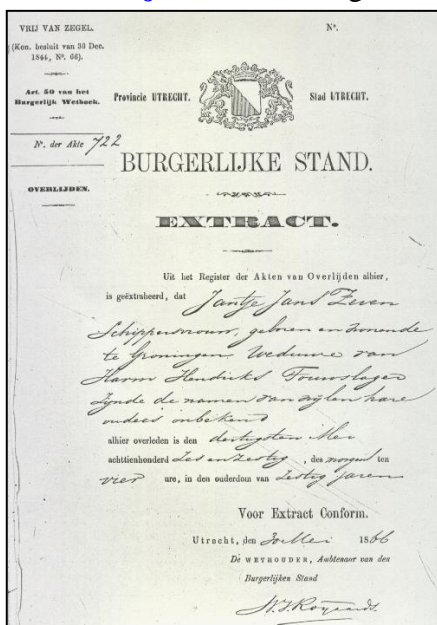 VRIJ VAN ZEGEL.
(Kon. besluit van 30 Dec.
1844, No. 66).
Art. 50 van het
Burgerlijk Wetboek.
No. der Akte 722
OVERLIJDEN.
No.
Provincie UTRECHT. Stad UTRECHT.
BURGERLIJKE STAND.
EXTRACT.
Uit het Register der Akten van Overlijden alhier,
is geëxtraheerd, dat Jantje Jans Zeven
Schippersvrouw, geboren en wonende
te Groningen Weduwe van
Harm Hendriks Touwslager
Zynde de namen van wylen hare
ouders onbekend
alhier overleden is den dertigsten Mei
achttienhonderd Zes en zestig, des morgens ten
vier ure, in den ouderdom van Zestig jaren
Voor Extract Conform.
Utrecht, den 30 Mei 1866
De WETHOUDER, Ambtenaar van den
Burgerlijken Stand
Royaards